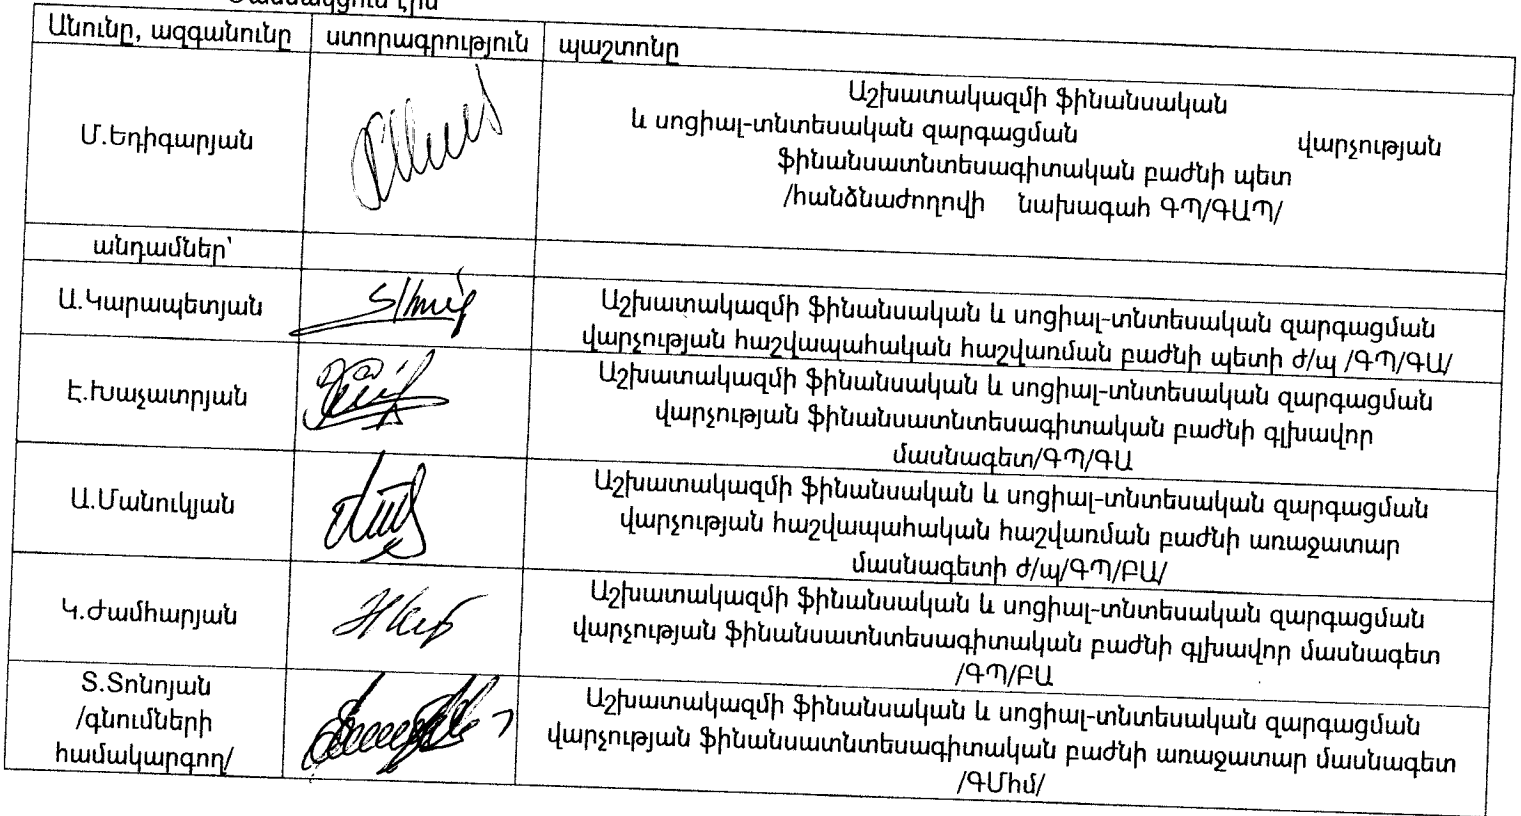 Անունը, ազգանունը ստորագրություն պաշտոնը
Մ.Եդիգարյան
Աշխատակազմի ֆինանսական
և սոցիալ-տնտեսական զարգացման վարչության
ֆինանսատնտեսագիտական բաժնի պետ
/հանձնաժողովի նախագահ ԳՊ/ԳԱՊ/
անդամներ՝
Ա.Կարապետյան
Աշխատակազմի ֆինանսական և սոցիալ-տնտեսական զարգացման
վարչության հաշվապահական հաշվառման բաժնի պետի ժ/պ /ԳՊ/ԳԱ/
Է.Խաչատրյան
Աշխատակազմի ֆինանսական և սոցիալ-տնտեսական զարգացման
վարչության ֆինանսատնտեսագիտական բաժնի գլխավոր
մասնագետ/ԳՊ/ԳԱ
Ա.Մանուկյան
Աշխատակազմի ֆինանսական և սոցիալ-տնտեսական զարգացման
վարչության հաշվապահական հաշվառման բաժնի առաջատար
մասնագետի ժ/պ/ԳՊ/ԲԱ/
Կ.Ժամհարյան
Աշխատակազմի ֆինանսական և սոցիալ-տնտեսական զարգացման
վարչության ֆինանսատնտեսագիտական բաժնի գլխավոր մասնագետ
/ԳՊ/ԲԱ
Տ.Տոնոյան
/գնումների
համակարգող/
Աշխատակազմի ֆինանսական և սոցիալ-տնտեսական զարգացման
վարչության ֆինանսատնտեսագիտական բաժնի առաջատար մասնագետ
/ԳՄհմ/